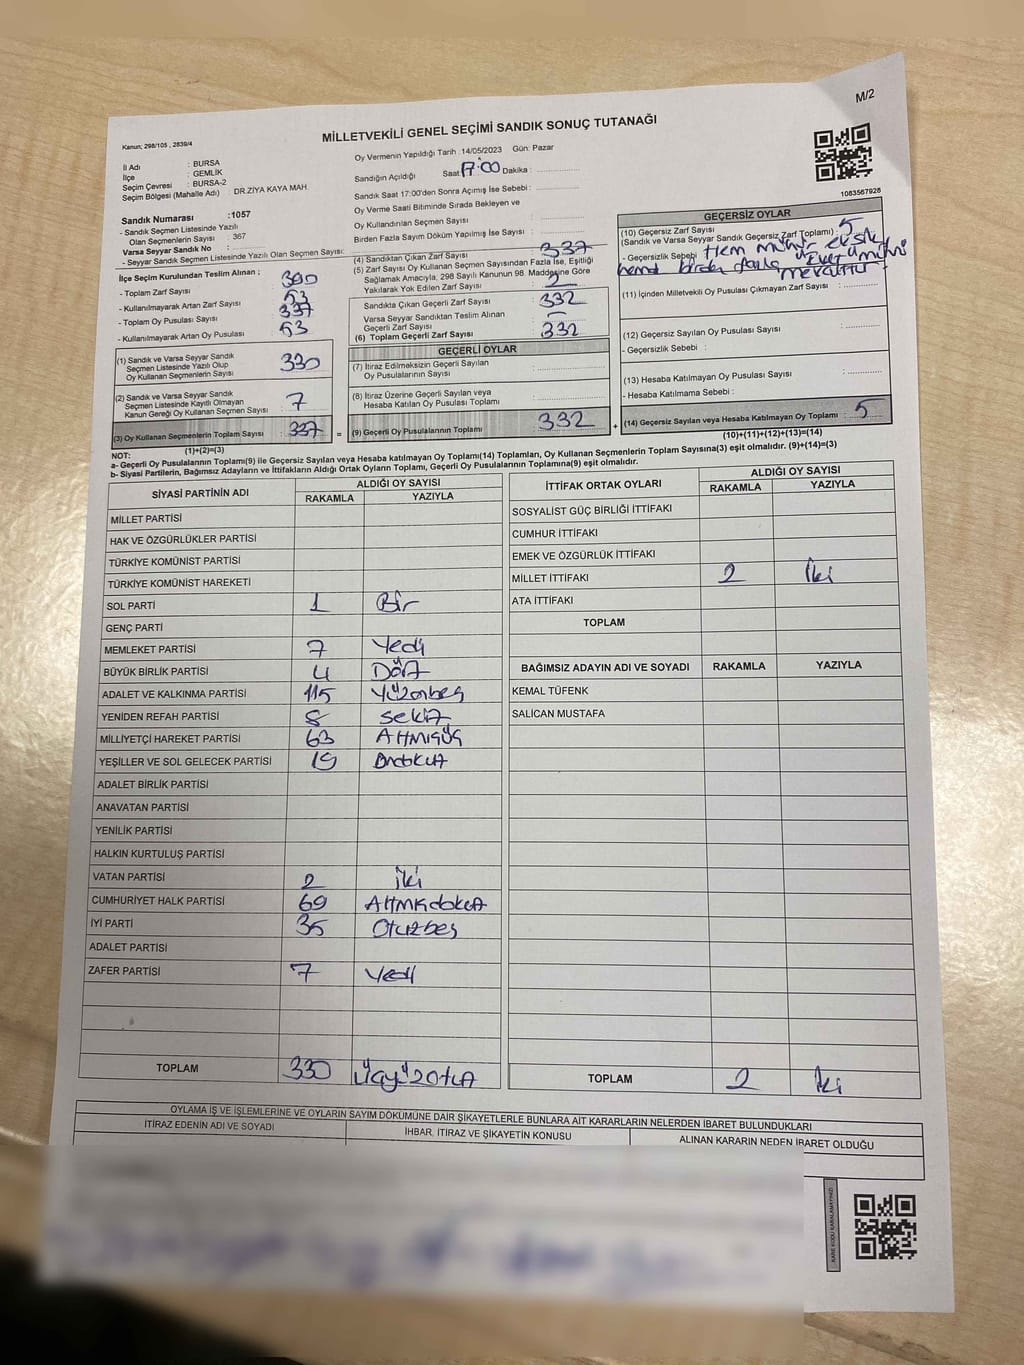 M/2
MİLLETVEKİLİ GENEL SEÇİMİ SANDIK SONUÇ TUTANAĞI
Kanun: 298/105 , 2839/4
İl Adı : BURSA
İlçe : GEMLİK
Seçim Çevresi : BURSA-2
Seçim Bölgesi (Mahalle Adı) DR.ZİYA KAYA MAH.
Sandık Numarası :1057
- Sandık Seçmen Listesinde Yazılı
Olan Seçmenlerin Sayısı : 367
Varsa Seyyar Sandık No :
- Seyyar Sandık Seçmen Listesinde Yazılı Olan Seçmen Sayısı:
Oy Vermenin Yapıldığı Tarih : 14/05/2023 Gün: Pazar
Sandığın Açıldığı Saat 17:00 Dakika :
Sandık Saat 17:00'den Sonra Açılmış İse Sebebi :
Oy Verme Saati Bitiminde Sırada Bekleyen ve
Oy Kullandırılan Seçmen Sayısı :
Birden Fazla Sayım Döküm Yapılmış İse Sayısı :
1083567928
İlçe Seçim Kurulundan Teslim Alınan ;
- Toplam Zarf Sayısı : 390
- Kullanılmayarak Artan Zarf Sayısı : 53
- Toplam Oy Pusulası Sayısı : 337
- Kullanılmayarak Artan Oy Pusulası : 53
(1) Sandık ve Varsa Seyyar Sandık
Seçmen Listesinde Yazılı Olup
Oy Kullanan Seçmenlerin Sayısı : 330
(2) Sandık ve Varsa Seyyar Sandık
Seçmen Listesinde Kayıtlı Olmayan
Kanun Gereği Oy Kullanan Seçmen Sayısı : 7
(3) Oy Kullanan Seçmenlerin Toplam Sayısı : 337
(1)+(2)=(3)
(4) Sandıktan Çıkan Zarf Sayısı : 337
(5) Zarf Sayısı Oy Kullanan Seçmen Sayısından Fazla İse, Eşitliği
Sağlamak Amacıyla, 298 Sayılı Kanunun 98. Maddesine Göre
Yakılarak Yok Edilen Zarf Sayısı :
Sandıkta Çıkan Geçerli Zarf Sayısı : 332
Varsa Seyyar Sandıktan Teslim Alınan
Geçerli Zarf Sayısı : -
(6) Toplam Geçerli Zarf Sayısı : 332
GEÇERLİ OYLAR
(7) İtiraz Edilmeksizin Geçerli Sayılan
Oy Pusulalarının Sayısı :
(8) İtiraz Üzerine Geçerli Sayılan veya
Hesaba Katılan Oy Pusulası Toplamı :
= (9) Geçerli Oy Pusulalarının Toplamı : 332
GEÇERSİZ OYLAR
(10) Geçersiz Zarf Sayısı
(Sandık ve Varsa Seyyar Sandık Geçersiz Zarf Toplamı) : 5
- Geçersizlik Sebebi : Hem mühür eksik
hemd birden fazla Evet mührü
mevcuttur
(11) İçinden Milletvekili Oy Pusulası Çıkmayan Zarf Sayısı :
(12) Geçersiz Sayılan Oy Pusulası Sayısı :
- Geçersizlik Sebebi :
(13) Hesaba Katılmayan Oy Pusulası Sayısı :
- Hesaba Katılmama Sebebi :
+ (14) Geçersiz Sayılan veya Hesaba Katılmayan Oy Toplamı : 5
(10)+(11)+(12)+(13)=(14)
NOT:
a- Geçerli Oy Pusulaları Toplamı(9) ile Geçersiz Sayılan veya Hesaba Katılmayan Oy Toplamı(14) Toplamları, Oy Kullanan Seçmenlerin Toplam Sayısına(3) eşit olmalıdır. (9)+(14)=(3)
b- Siyasi Partilerin, Bağımsız Adayların ve İttifakların Aldığı Ortak Oyların Toplamı, Geçerli Oy Pusulalarının Toplamına(9) eşit olmalıdır.
SİYASİ PARTİNİN ADI ALDIĞI OY SAYISI
RAKAMLA YAZIYLA
MİLLET PARTİSİ
HAK VE ÖZGÜRLÜKLER PARTİSİ
TÜRKİYE KOMÜNİST PARTİSİ
TÜRKİYE KOMÜNİST HAREKETİ
SOL PARTİ 1 Bir
GENÇ PARTİ
MEMLEKET PARTİSİ 7 Yedi
BÜYÜK BİRLİK PARTİSİ 4 Dört
ADALET VE KALKINMA PARTİSİ 115 Yüzonbeş
YENİDEN REFAH PARTİSİ 8 Sekiz
MİLLİYETÇİ HAREKET PARTİSİ 63 Altmışüç
YEŞİLLER VE SOL GELECEK PARTİSİ 19 Ondokuz
ADALET BİRLİK PARTİSİ
ANAVATAN PARTİSİ
YENİLİK PARTİSİ
HALKIN KURTULUŞ PARTİSİ
VATAN PARTİSİ 2 iki
CUMHURİYET HALK PARTİSİ 69 Altmışdokuz
İYİ PARTİ 35 Otuzbeş
ADALET PARTİSİ
ZAFER PARTİSİ 7 Yedi
TOPLAM 330 Üçyüzotuz
İTTİFAK ORTAK OYLARI ALDIĞI OY SAYISI
RAKAMLA YAZIYLA
SOSYALİST GÜÇ BİRLİĞİ İTTİFAKI
CUMHUR İTTİFAKI
EMEK VE ÖZGÜRLÜK İTTİFAKI
MİLLET İTTİFAKI 2 İki
ATA İTTİFAKI
TOPLAM
BAĞIMSIZ ADAYIN ADI VE SOYADI RAKAMLA YAZIYLA
KEMAL TÜFENK
SALİCAN MUSTAFA
TOPLAM 2 İki
OYLAMA İŞ VE İŞLEMLERİNE VE OYLARIN SAYIM DÖKÜMÜNE DAİR ŞİKAYETLERLE BUNLARA AİT KARARLARIN NELERDEN İBARET BULUNDUKLARI
İTİRAZ EDENİN ADI VE SOYADI İHBAR, İTİRAZ VE ŞİKAYETİN KONUSU ALINAN KARARIN NEDEN İBARET OLDUĞU
KARE KODU KARALAMAYINIZ!